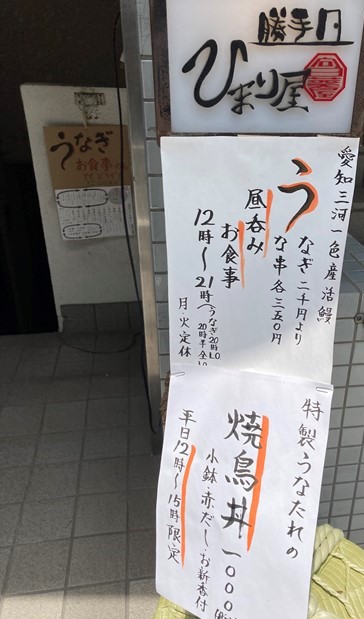 勝手口
ひまり屋
うなぎ
お食事
愛知三河一色産活鰻
うなぎ二千円より
うな串各三五〇円
昼呑み
お食事
12時〜21時(うなぎ20時LO
20時半全LO
月・火定休
特製うなたれの
焼鳥丼 一〇〇〇
小鉢・赤だし・お新香付
平日12時〜15時限定